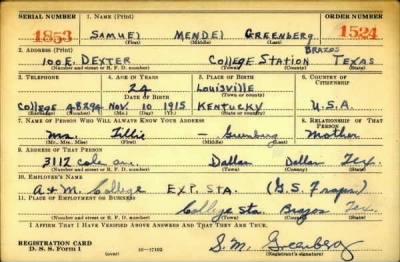 SERIAL NUMBER 1. NAME (Print) ORDER NUMBER
1853 SAMUEL MENDEL GREENBERG 1524
(First) (Middle) (Last)
2. ADDRESS (Print) BRAZOS
100 E. DEXTER COLLEGE STATION TEXAS
(Number and street or R. F. D. number) (Town) (County) (State)
3. TELEPHONE 4. AGE IN YEARS 5. PLACE OF BIRTH 6. COUNTRY OF CITIZENSHIP
24 Louisville
DATE OF BIRTH (Town or county)
College 48294 NOV. 10 1915 KENTUCKY U.S.A.
(Exchange) (Number) (Mo.) (Day) (Yr.) (State or country)
7. NAME OF PERSON WHO WILL ALWAYS KNOW YOUR ADDRESS 8. RELATIONSHIP OF THAT PERSON
Mrs. Tillie — Greenberg Mother
(Mr., Mrs., Miss) (First) (Middle) (Last)
9. ADDRESS OF THAT PERSON
3117 Cole ave. Dallas Dallas Tex.
(Number and street or R. F. D. number) (Town) (County) (State)
10. EMPLOYER'S NAME
A+M. College EXP. STA. (G.S. Fraps)
11. PLACE OF EMPLOYMENT OR BUSINESS
College Sta. Brazos Tex.
(Number and street or R. F. D. number) (Town) (County) (State)
I AFFIRM THAT I HAVE VERIFIED ABOVE ANSWERS AND THAT THEY ARE TRUE.
REGISTRATION CARD S. M. Greenberg
D. S. S. Form 1 (over) (Registrant's signature)